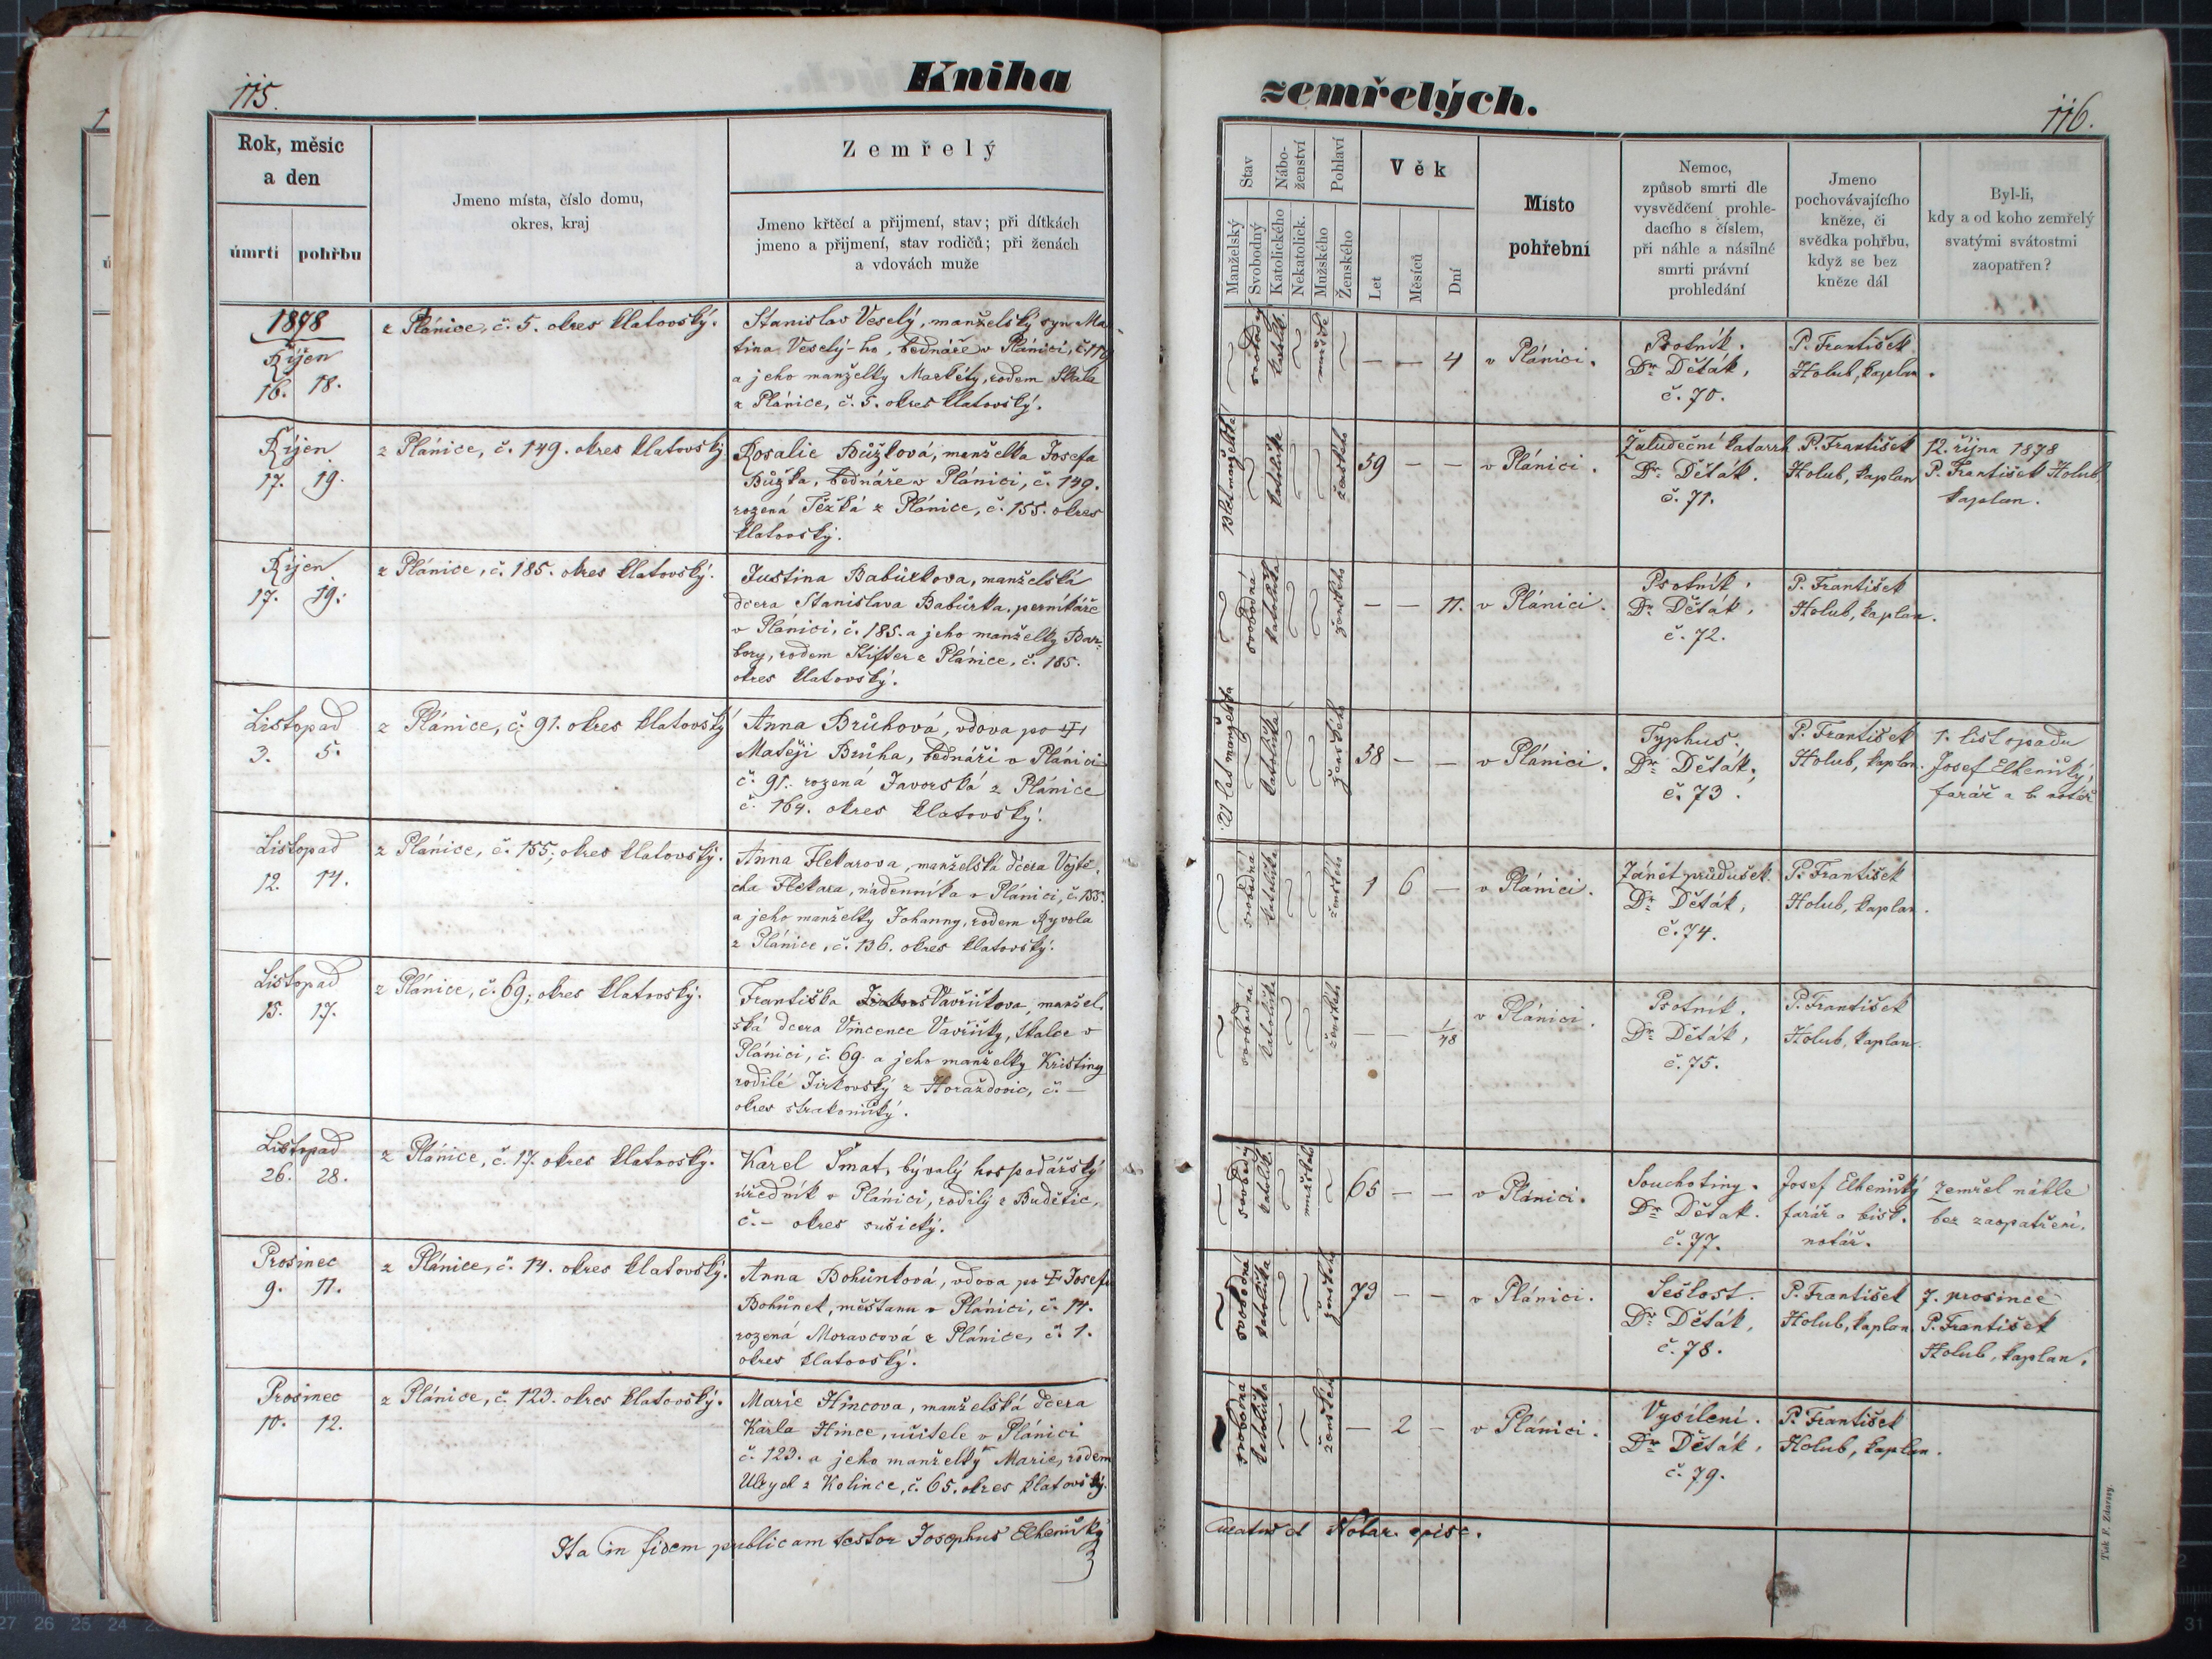 115.
Kniha
Rok, měsíc
a den
úmrtí
pohřbu
Jmeno místa, číslo domu,
okres, kraj
Zemřelý
Jmeno křtěcí a přijmení, stav; při dítkách
jmeno a přijmení, stav rodičů; při ženách
a vdovách muže
1878
Říjen
16. 18.
z Plánice, č. 5. okres klatovský.
Stanislav Veselý, manželský syn Ma
tina Veselý-ho, bednáře v Plánici,
a jeho manželky Markéty, rodem Skala
z Plánice, č. 5. okres klatovský.
Říjen
17. 19.
z Plánice, č. 149. okres klatovský
Rosalie Bůžková, manželka Josefa
Bůžka, bednáře v Plánici, č. 149.
rozená Těžká z Plánice, č. 155. okres
klatovský.
Říjen
17. 19.
z Plánice, č. 185. okres klatovský.
Justina Babůrkova, manželská
dcera Stanislava Babůrka, perníkáře
v Plánici, č. 185. a jeho manželky Bar-
bory, rodem Stifter z Plánice, č. 185.
okres klatovský.
Listopad
3. 5.
z Plánice, č. 91. okres klatovský
Anna Brůhová, vdova po
Matěji Brůha, bednáři v Plánici
č. 91. rozená Javorská z Plánice
č. 164. okres klatovský.
Listopad
12. 14.
z Plánice, č. 155, okres klatovský.
Anna Flekarova, manželská dcera Vojtě-
cha Flekara, nádenníka v Plánici, č. 155.
a jeho manželky Johanny, rodem Ryvola
z Plánice, č. 136. okres klatovský.
Listopad
15. 17.
z Plánice, č. 69, okres klatovský.
Františka Vavřičkova, manžel
ská dcera Vincence Vavřičky, tkalce v
Plánici, č. 69. a jeho manželky Kristiny
rodilé Jirkovský z Horažďovic, č. —
okres strakonický.
Listopad
26. 28.
z Plánice, č. 17. okres klatovský.
Karel Šmat, bývalý hospodářský
úředník v Plánici, rodilý z Budětic,
č. – okres sušický.
Prosinec
9. 11.
z Plánice, č. 14. okres klatovský.
Anna Bohůnková, vdova po Josefu
Bohůnek, měšťanu v Plánici, č. 14.
rozená Moravcová z Plánice, č. 1.
okres klatovský.
Prosinec
10. 12.
z Plánice, č. 123. okres klatovský.
Marie Hincova, manželská dcera
Karla Hince, učitele v Plánici
č. 123. a jeho manželky Marie, rodem
Ulrych z Kolince, č. 65. okres klatovský.
Ita in fidem publicam testor Josephus Elhenický
zemřelých.
116.
Stav
Nábo-
ženství
Pohlaví
Věk
Manželský
Svobodný
Katolického
Nekatolick.
Mužského
Ženského
Let
Měsíců
Dní
Místo
pohřební
Nemoc,
způsob smrti dle
vysvědčení prohle-
dacího s číslem,
při náhle a násilné
smrti právní
prohledání
Jmeno
pochovávajícího
kněze, či
svědka pohřbu,
když se bez
kněze dál
Byl-li,
kdy a od koho zemřelý
svatými svátostmi
zaopatřen?
svobodný
— — 4
v Plánici.
Psotník.
Dr. Děták,
č. 70.
P. František
Holub, kaplan.
katolička
ženského
59 — —
v Plánici.
Žaludeční katarrh
Dr. Děták.
č. 71.
P. František
Holub, kaplan
12. října 1878
P. František Holub
kaplan.
svobodná
katolička
ženského
— — 11.
v Plánici.
Psotník.
Dr. Děták,
č. 72.
P. František
Holub, kaplan.
katolička
ženského
58 — —
v Plánici.
Typhus.
Dr. Děták,
č. 73.
P. František
Holub, kaplan.
1. listopadu
Josef Elhenický,
farář a b. notář
svobodná
katolička
ženského
1 6 —
v Plánici.
Zánět průdušek.
Dr. Děták,
č. 74.
P. František
Holub, kaplan.
svobodná
katolička
ženského
— — 1/48
v Plánici.
Psotník.
Dr. Děták,
č. 75.
P. František
Holub, kaplan.
svobodný
katolík
mužského
65 — —
v Plánici.
Souchotiny.
Dr. Děták.
č. 77.
Josef Elhenický
farář a bisk.
notář.
Zemřel náhle
bez zaopatření.
svobodná
katolička
ženského
79 — —
v Plánici.
Sešlost.
Dr. Děták,
č. 78.
P. František
Holub, kaplan.
7. prosince
P. František
Holub, kaplan.
svobodná
katolička
ženského
— 2 —
v Plánici.
Vysílení.
Dr. Děták,
č. 79.
P. František
Holub, kaplan.
Curatus et Notar. episc.
Tisk F. Zdarssy.